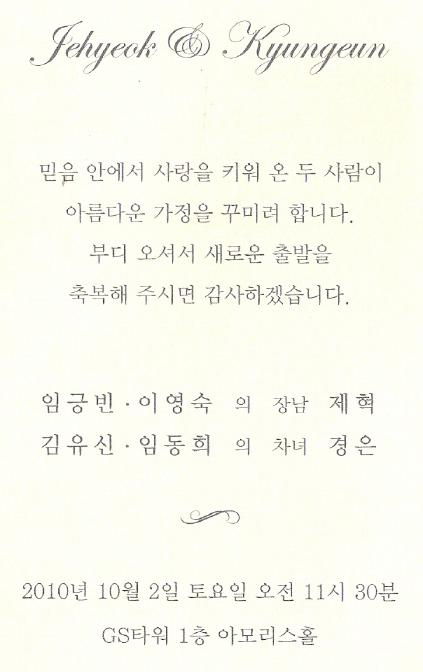 Jehyeok & Kyungeun
믿음 안에서 사랑을 키워 온 두 사람이
아름다운 가정을 꾸미려 합니다.
부디 오셔서 새로운 출발을
축복해 주시면 감사하겠습니다.
임긍빈 · 이영숙 의 장남 제혁
김유신 · 임동희 의 차녀 경은
2010년 10월 2일 토요일 오전 11시 30분
GS타워 1층 아모리스홀